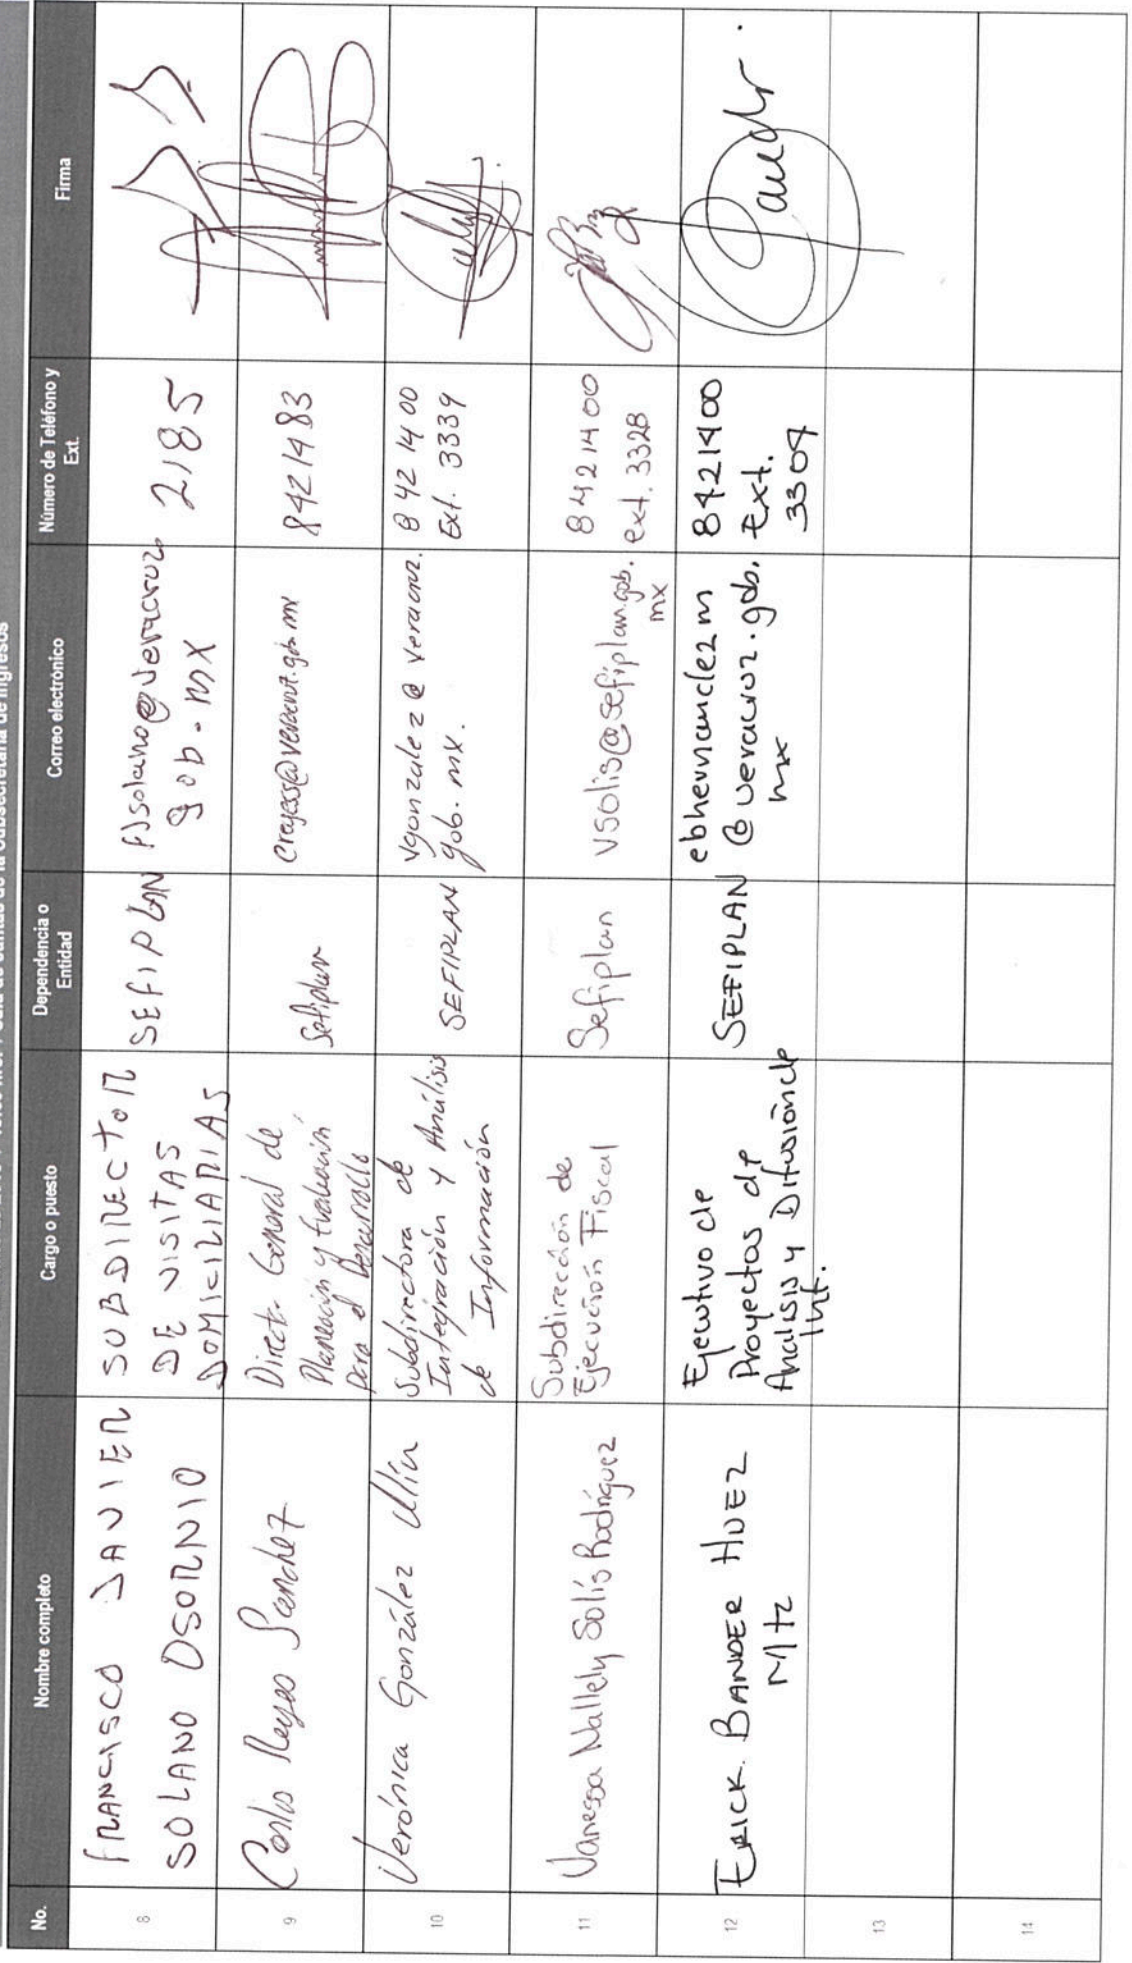 Sala de Juntas de la Subsecretaría de Ingresos
No.
Nombre completo
Cargo o puesto
Dependencia o
Entidad
Correo electrónico
Número de Teléfono y
Ext.
Firma
8
FRANCISCO JAVIER
SOLANO OSORNIO
SUBDIRECTOR
DE VISITAS
DOMICILIARIAS
SEFIPLAN
fjsolano@veracruz.
gob.mx
2185
9
Carlos Reyes Sanchez
Direct. General de
Planeación y Evaluación
para el Desarrollo
Sefiplan
creyess@veracruz.gob.mx
8421483
10
Verónica González Ulín
Subdirectora de
Integración y Análisis
de Información
SEFIPLAN
vgonzalez@veracruz.
gob.mx.
8 42 14 00
Ext. 3339
11
Vanessa Nallely Solís Rodríguez
Subdirección de
Ejecución Fiscal
Sefiplan
vsolis@sefiplan.gob.
mx
8421400
ext. 3328
12
ERICK BANDER HDEZ
Mtz
Ejecutivo de
Proyectos de
Analisis y Difusión de
Inf.
SEFIPLAN
ebhernandezm
@veracruz.gob.
mx
8421400
Ext.
3309
13
14